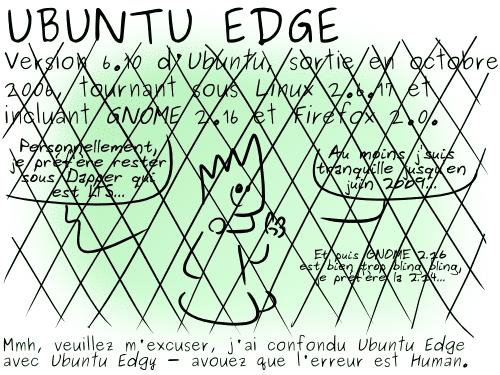 UBUNTU EDGE
Version 6.10 d'Ubuntu, sortie en octobre
2006, tournant sous Linux 2.6.17 et
incluant GNOME 2.16 et Firefox 2.0.
Personnellement,
je préfère rester
sous Dapper qui
est LTS...
Au moins j'suis
tranquille jusqu'en
juin 2009...
Et puis GNOME 2.16
est bien trop bling bling,
je préfère la 2.14...
Mmh, veuillez m'excuser, j'ai confondu Ubuntu Edge
avec Ubuntu Edgy – avouez que l'erreur est Human.